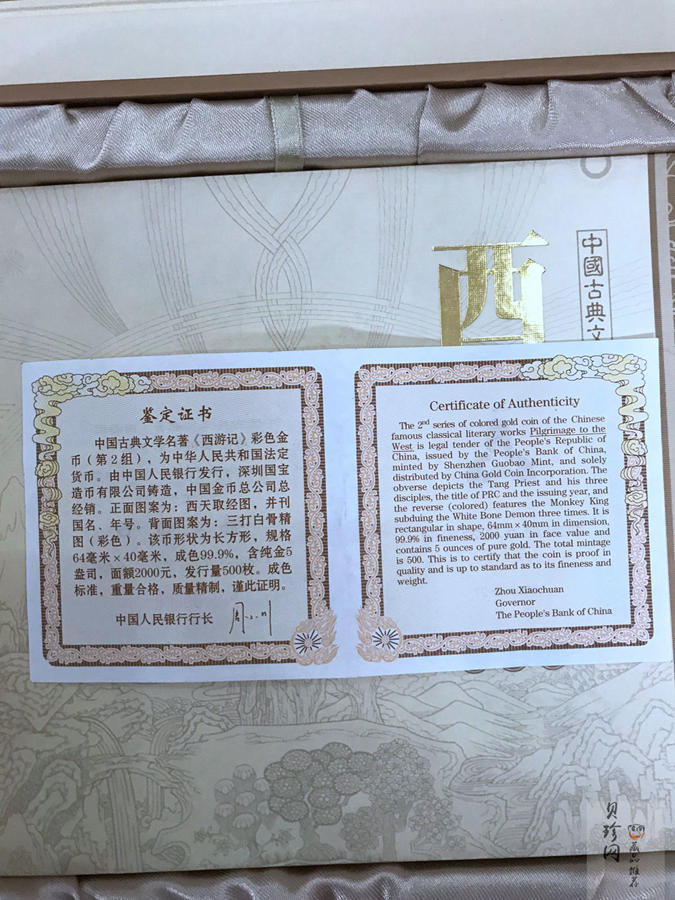 西
中國古典文
鉴定证书
中国古典文学名著《西游记》彩色金
币（第2组），为中华人民共和国法定
货币。由中国人民银行发行，深圳国宝
造币有限公司铸造，中国金币总公司总
经销。正面图案为：西天取经图，并刊
国名、年号。背面图案为：三打白骨精
图（彩色）。该币形状为长方形，规格
64毫米×40毫米，成色99.9%，含纯金5
盎司，面额2000元，发行量500枚。成色
标准，重量合格，质量精制，谨此证明。
中国人民银行行长
Certificate of Authenticity
The 2nd series of colored gold coin of the Chinese
famous classical literary works Pilgrimage to the
West is legal tender of the People's Republic of
China, issued by the People's Bank of China,
minted by Shenzhen Guobao Mint, and solely
distributed by China Gold Coin Incorporation. The
obverse depicts the Tang Priest and his three
disciples, the title of PRC and the issuing year, and
the reverse (colored) features the Monkey King
subduing the White Bone Demon three times. It is
rectangular in shape, 64mm×40mm in dimension,
99.9% in fineness, 2000 yuan in face value and
contains 5 ounces of pure gold. The total mintage
is 500. This is to certify that the coin is proof in
quality and is up to standard as to its fineness and
weight.
Zhou Xiaochuan
Governor
The People's Bank of China
贝珍网
藏品推荐